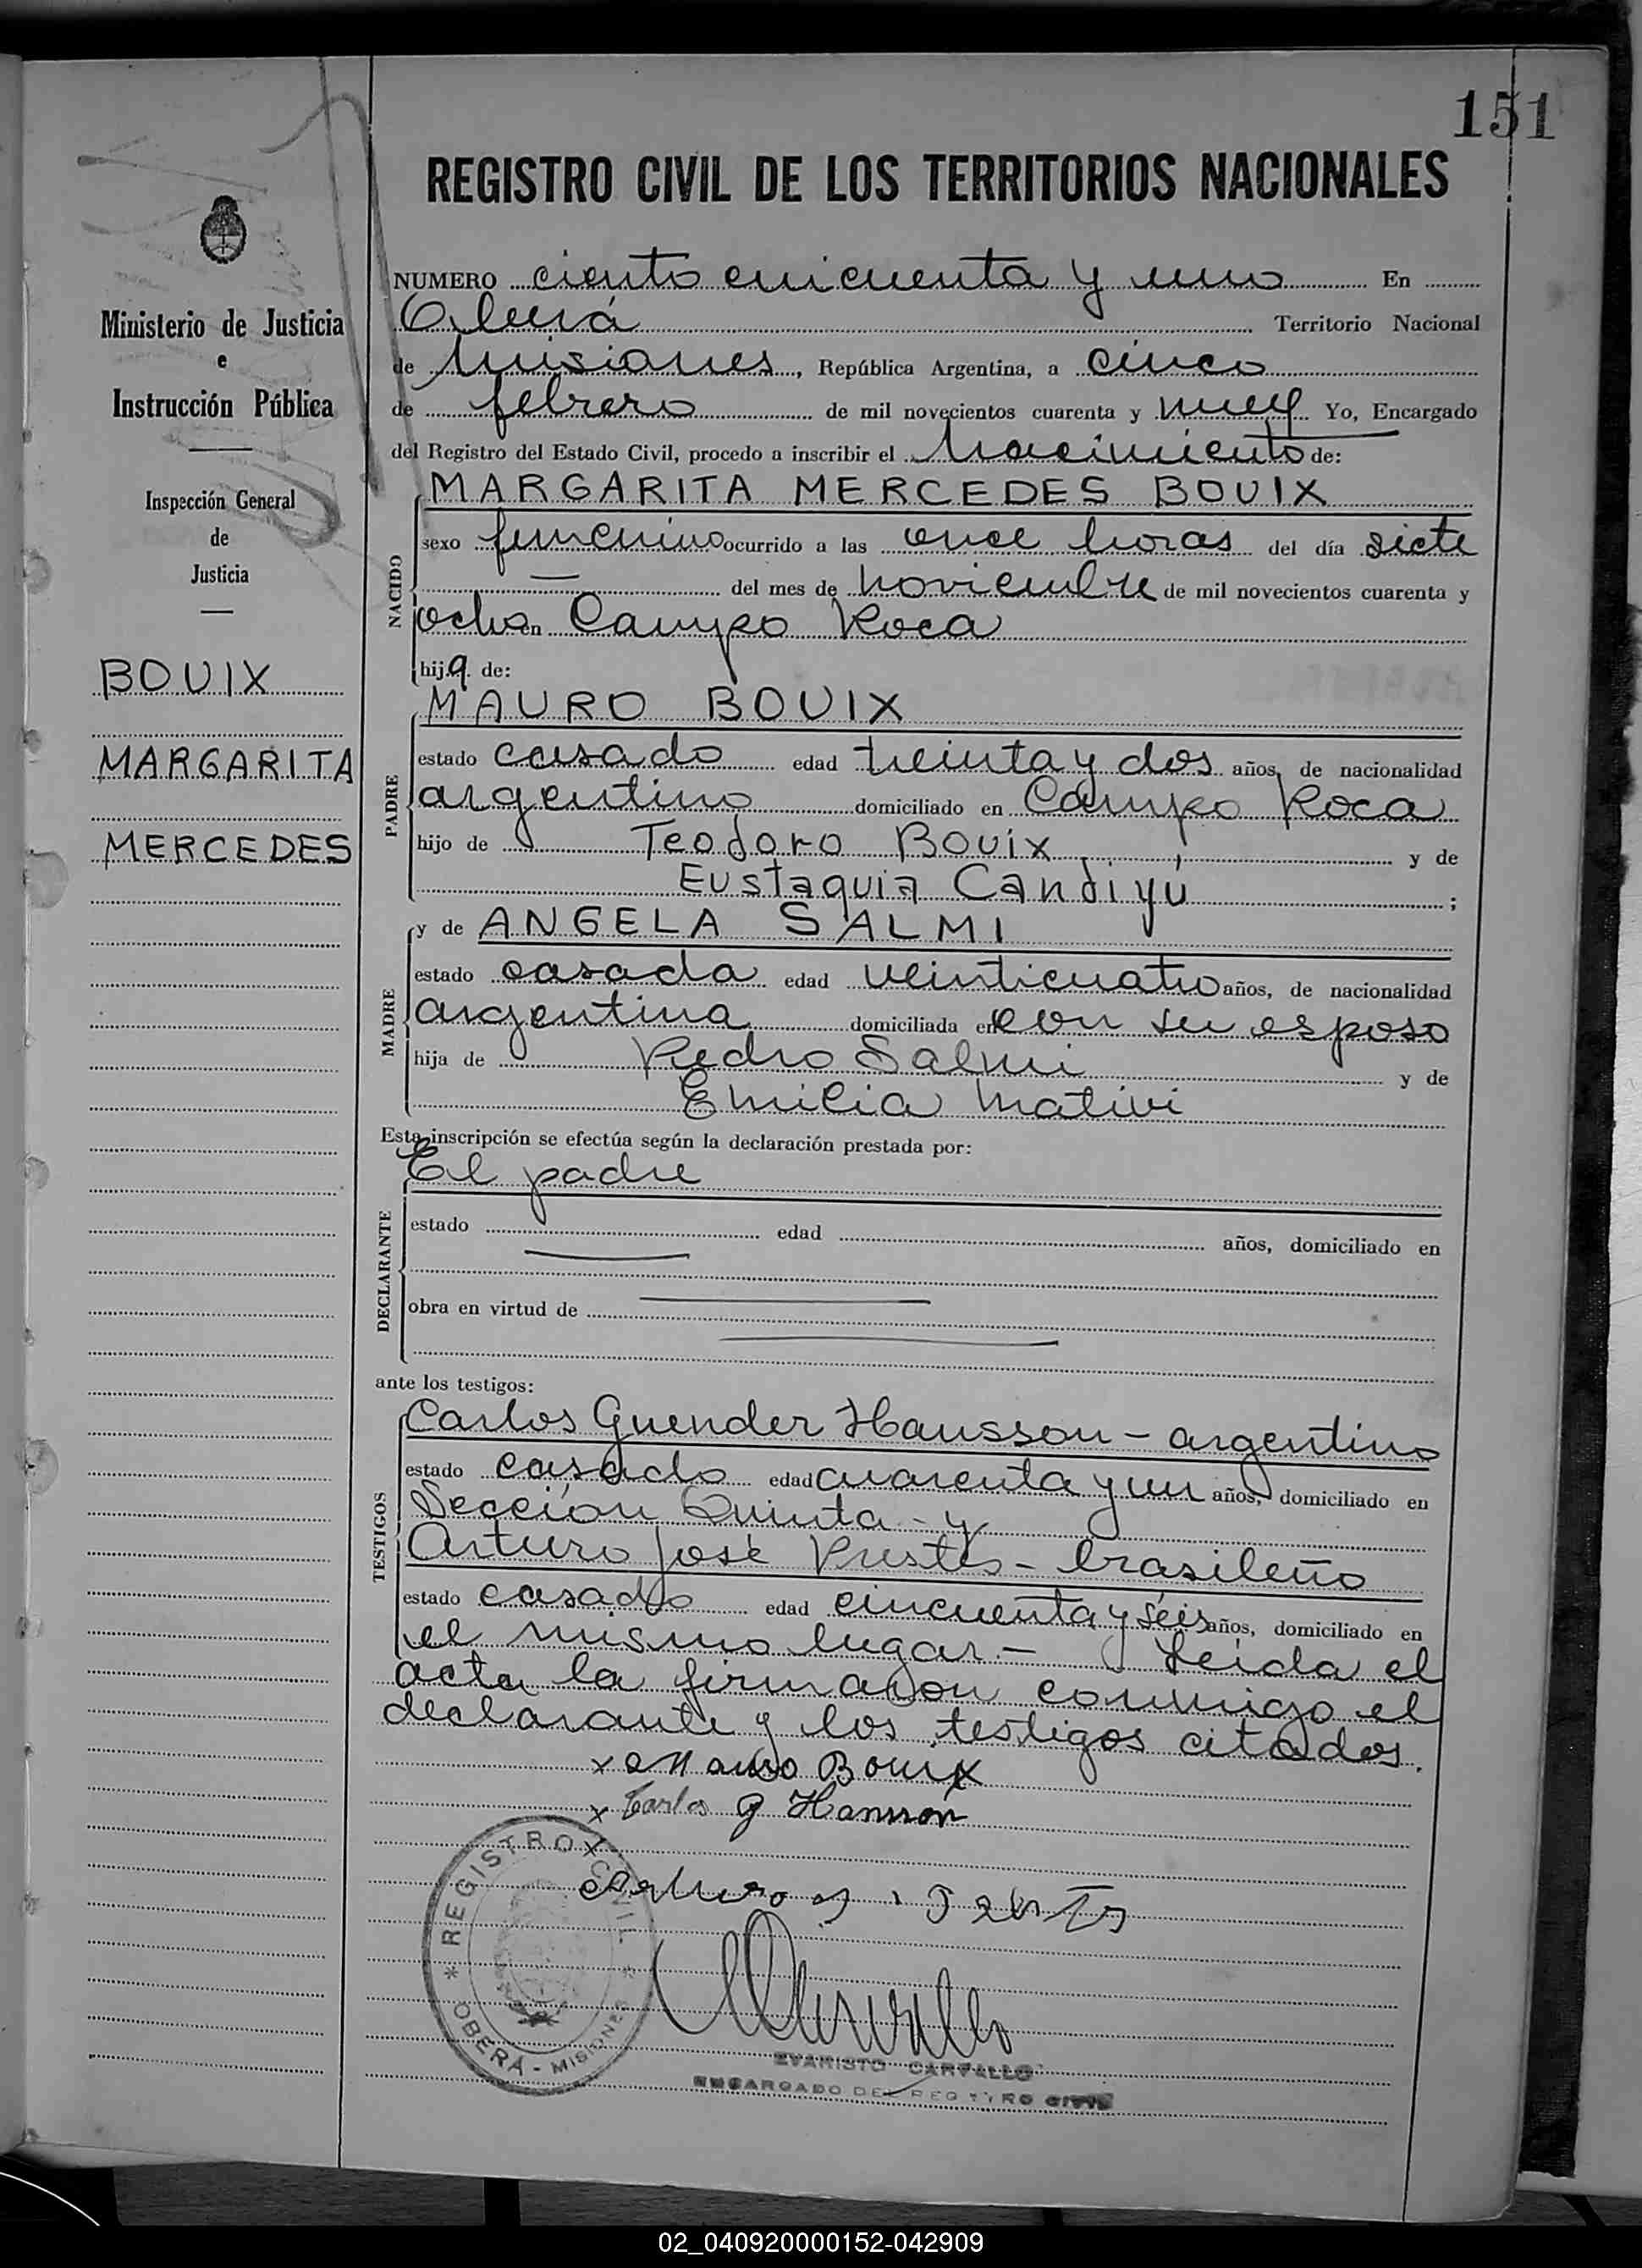 151
REGISTRO CIVIL DE LOS TERRITORIOS NACIONALES
Ministerio de Justicia
e
Instrucción Pública
Inspección General
de
Justicia
BOUIX
MARGARITA
MERCEDES
NUMERO ciento cincuenta y uno En
Oberá Territorio Nacional
de Misiones, República Argentina, a cinco
de febrero de mil novecientos cuarenta y nueve Yo, Encargado
del Registro del Estado Civil, procedo a inscribir el Nacimiento de:
MARGARITA MERCEDES BOUIX
NACIDO
sexo femenino ocurrido a las once horas del día siete
del mes de noviembre de mil novecientos cuarenta y
ocho en Campo Roca
hija de:
MAURO BOUIX
PADRE
estado casado edad treinta y dos años, de nacionalidad
argentino domiciliado en Campo Roca
hijo de Teodoro Bouix y de
Eustaquia Candiyú ;
y de ANGELA SALMI
MADRE
estado casada edad veinticuatro años, de nacionalidad
argentina domiciliada en con su esposo
hija de Pedro Salmi y de
Emilia Mativi
Esta inscripción se efectúa según la declaración prestada por:
El padre
DECLARANTE
estado edad años, domiciliado en
obra en virtud de
ante los testigos:
Carlos Guender Hansson - argentino
TESTIGOS
estado casado edad cuarenta y un años, domiciliado en
Sección Quinta - y
Arturo José Prestes - brasileño
estado casado edad cincuenta y séis años, domiciliado en
el mismo lugar.- Leida el
acta la firmaron conmigo el
declarante y los testigos citados.
x Mauro Bouix
x Carlos G Hansson
x
Arturo J.
REGISTRO CIVIL
* OBERÁ - MISIONES *
EVARISTO CARVALLO
ENCARGADO DEL REGISTRO CIVIL
02_040920000152-042909